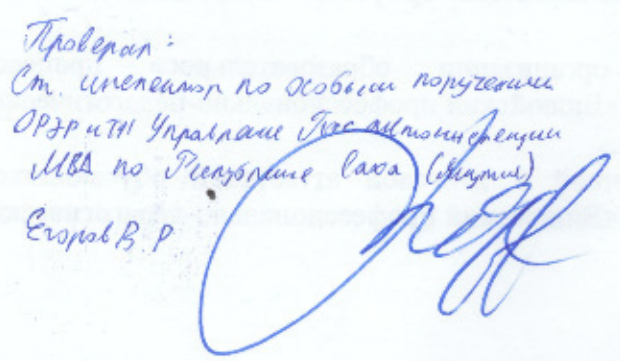 Проверил:
Ст. инспектор по особым поручениям
ОРЭР и ТН Управление Госавтоинспекции
МВД по Республике Саха (Якутия)
Егоров В. Р